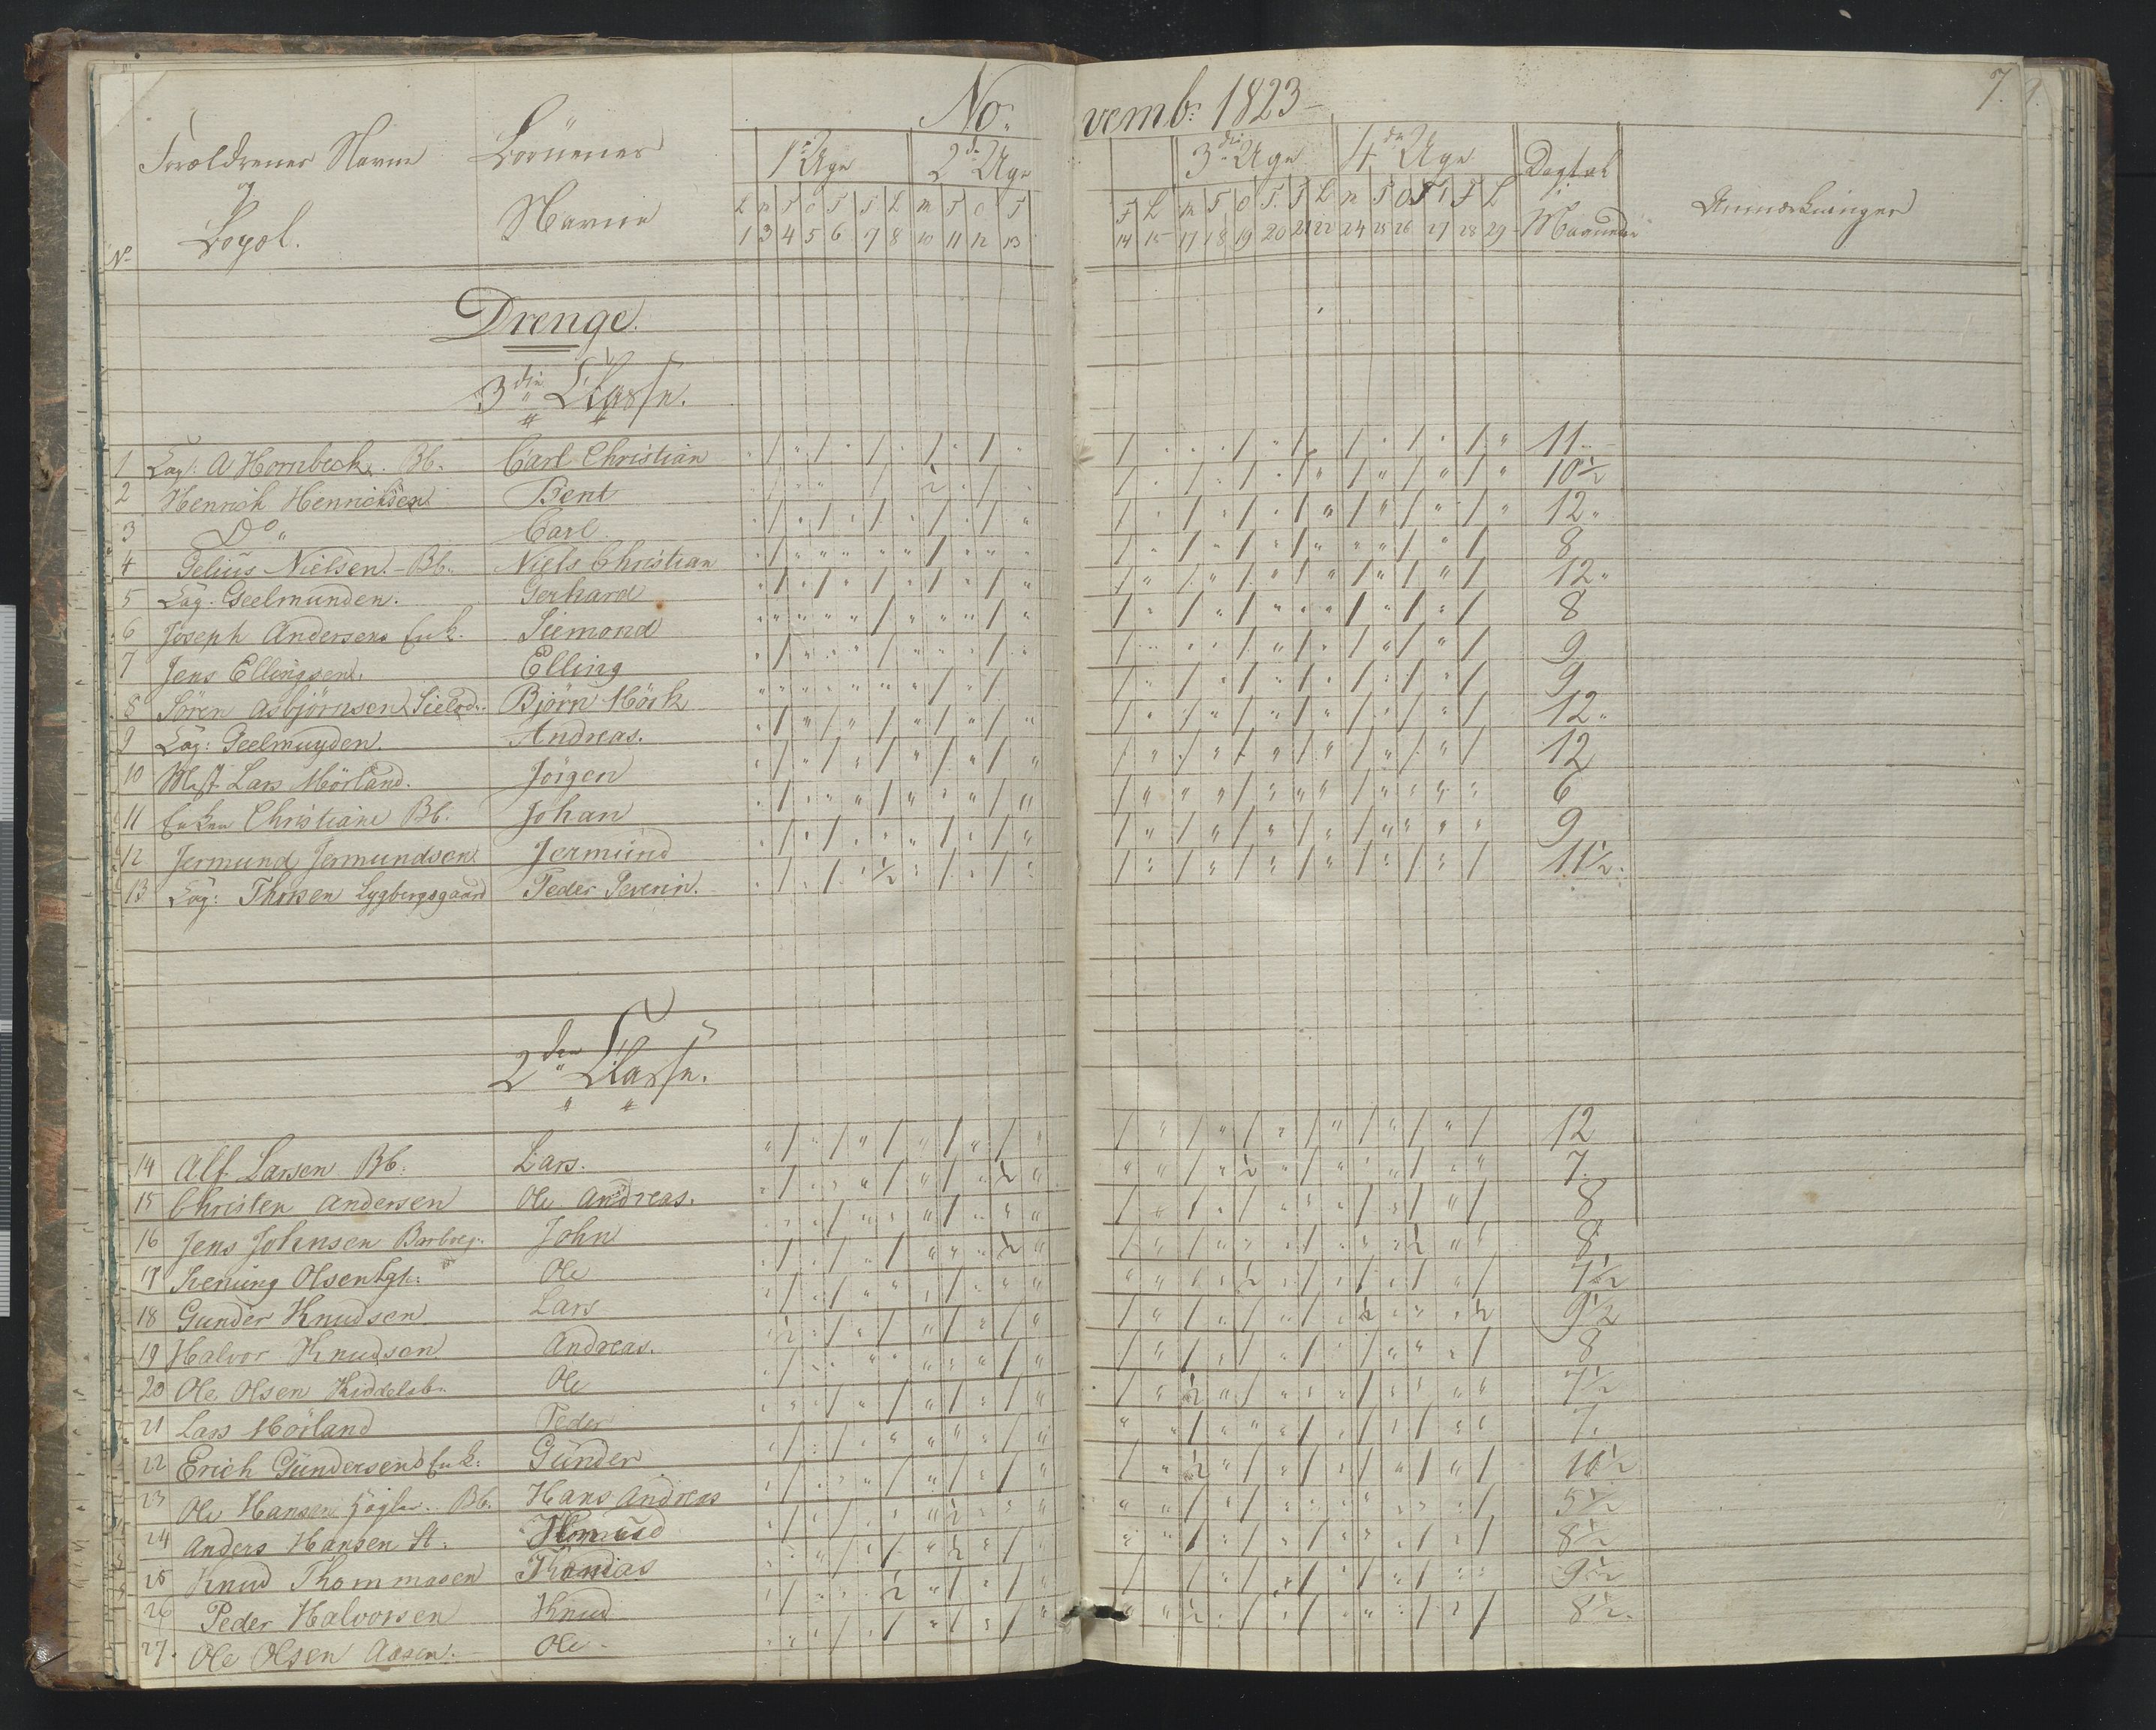 No: vemb: 1823
7.
Forældrenes Navne
og
Bopæl.
Börnenes
Navne
1e Uge 2den Uge 3die Uge 4de Uge
Dagtal
i
Maaneden
Anmærkninger
No
L M T O T F L M T O T F L M T O T F L M T O T F L
1 3 4 5 6 7 8 10 11 12 13 14 15 17 18 19 20 21 22 24 25 26 27 28 29
Drenge.
3die Classe.
1 Cap: A Hornbech. Bb. Carl Christian 11
2 Henrich Henrichsen Bent 10 1/2
3 Do " Carl 12 "
4 Gelius Nielsen. - Bb. Niels Christian 8
5 Cap. Geelmunden. Gerhard 12 "
6 Joseph Andersens Enk. Siemond 8
7 Jens Ellingsen. Elling 9
8 Sören Asbjörnsen Bjørn Mörk 9
9 Cap: Geelmuyden. Andreas. 12 "
10 Mest Lars Mörland. Jörgen 12
11 Enken Christiane Bb. Johan 6
12 Jermund Jermundsen Jermund 9
13 Cap: Thorsen Lygbergsgaard Peder Severin. 11 1/2.
2den Classe.
14 Alf Larsen Bb: Lars. 12
15 Christen Andersen Ole Andreas. 7.
16 Jens Johnsen John 8
17 Svenung Olsen Ole 8
18 Gunder Knudsen Lars 7 1/2
19 Halvor Knudsen Andreas. 9 1/2
20 Ole Olsen Kiddelsb. Ole 8
21 Lars Mörland Peder 7 1/2
22 Erich Gundersens Enk: Gunder 7.
23 Ole Hansen Bb. Hans Andreas 10 1/2
24 Anders Hansen St. 5 1/2
25 Knud Thommasen 8 1/2
26 Peder Halvorsen Knud 9 1/2
27. Ole Olsen Aasen. Ole 8 1/2.